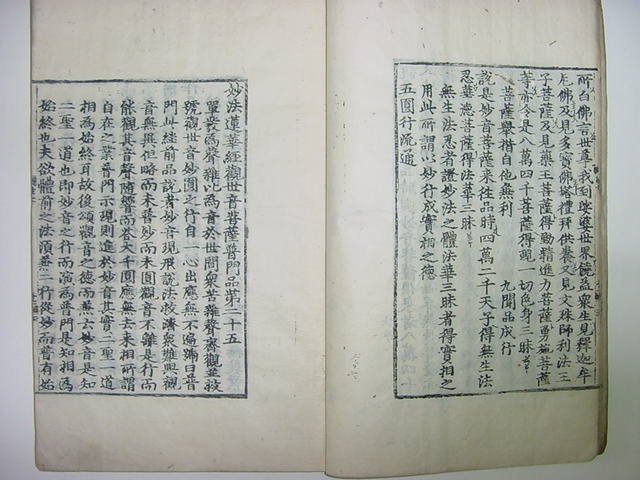 所白佛言世尊我到娑婆世界饒益衆生見釋迦牟
尼佛及見多寶佛塔禮拜供養又見文殊師利法王
子菩薩及見藥王菩薩得勤精進力菩薩勇施菩薩
等亦令是八萬四千菩薩得現一切色身三昧
菩薩擧措自他無利 九聞品成行
說是妙音菩薩來往品時四萬二千天子得無生法
忍華德菩薩得法華三昧
無生法忍者證妙法之體法華三昧者得實相之
用此所謂以妙行成實相之德
五圓行流通
妙法蓮華經觀世音菩薩普門品第二十五
單義爲聲雜比爲音於世間衆苦雜聲齊觀並救
號觀世音妙圓之行自一心出應無不徧號曰普
門此經前品說者妙音現形說法救濟衆難與觀
音無異但略而未普妙而未圓觀音不離是行而
能觀其音聲隨響而答大千圓應無去來相所謂
自在之業普門示現則進於妙音其實二聖一道
相爲始終耳故後頌觀音之德而兼云妙音是知
二聖一道也即妙音之行而演爲普門是知相爲
始終也夫欲體前之法須兼二行從妙而普有始